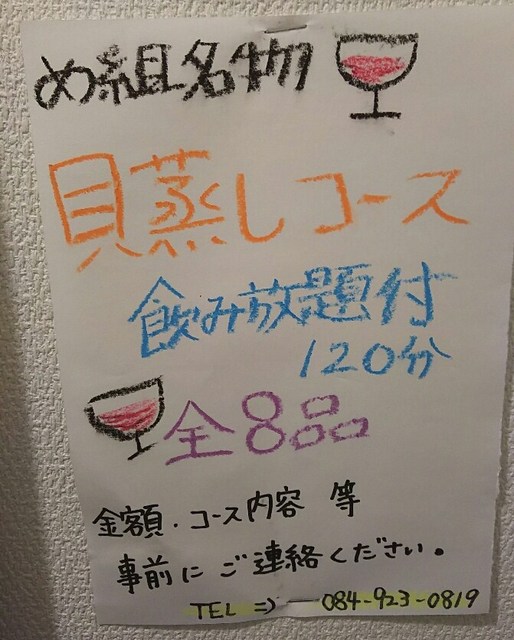 め組名物
貝蒸しコース
飲み放題付
120分
全8品
金額・コース内容 等
事前にご連絡ください。
TEL ⇒ 084-923-0819